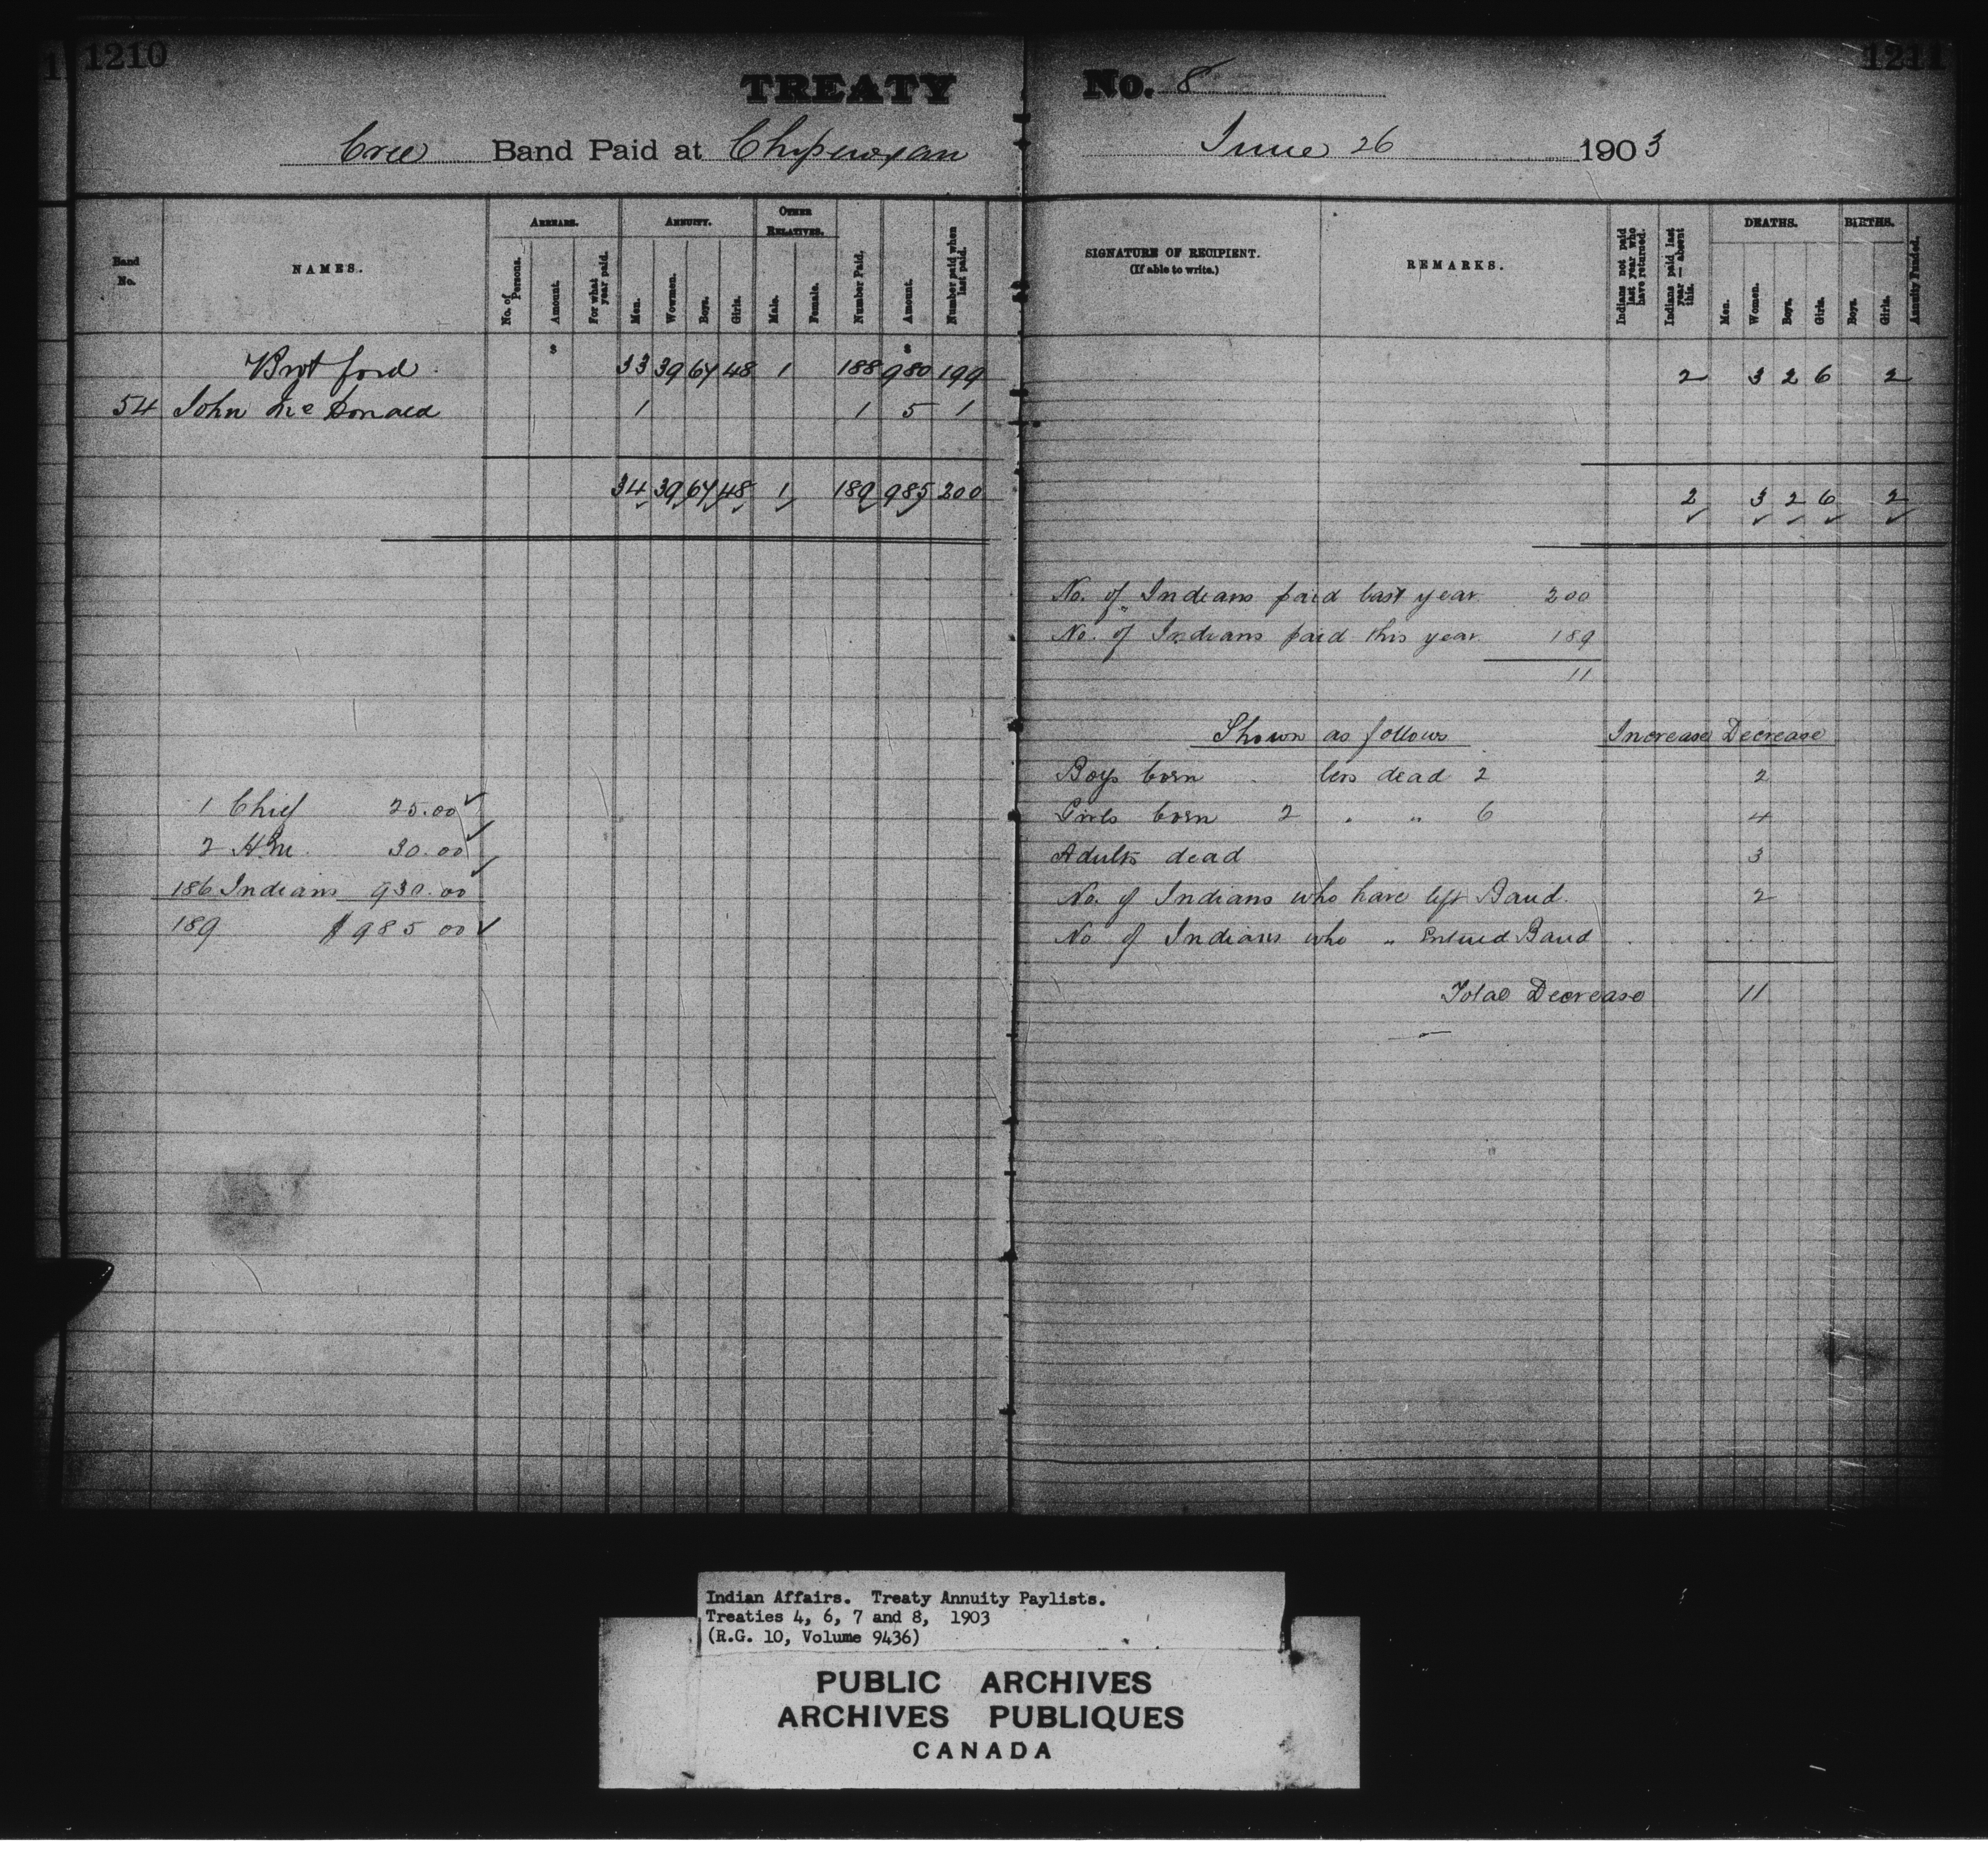 1210
TREATY
Cree Band Paid at Chipewyan
Band No.
NAMES.
ARREARS.
No. of Persons.
Amount.
For what year paid.
ANNUITY.
Men.
Wowmen.
Boys.
Girls.
OTHER RELATIVES.
Male.
Female.
Number Paid.
Amount.
Number paid when last paid.
$ $
Brot ford 33 39 67 48 1 188 980 199
54 John McDonald 1 1 5 1
34 39 67 48 1 189 985 200
1 Chief 25.00
2 H.M. 30.00
186 Indians 930.00
189 $985 00
1211
No. 8
June 26 1903
SIGNATURE OF RECIPIENT.
(If able to write.)
REMARKS.
Indians not paid last year who have returned.
Indians paid last year — absent this.
DEATHS.
Men.
Women.
Boys.
Girls.
BIRTHS.
Boys.
Girls.
Annuity Funded.
2 3 2 6 2
2 3 2 6 2
No. of Indians paid last year 200
No. of Indians paid this year 189
11
Shown as follows Increase Decrease
Boys born less dead 2 2
Girls born 2 " " 6 4
Adults dead 3
No. of Indians who have left Band. 2
No of Indians who " Entered Band
Total Decrease 11
Indian Affairs. Treaty Annuity Paylists.
Treaties 4, 6, 7 and 8, 1903
(R.G. 10, Volume 9436)
PUBLIC ARCHIVES
ARCHIVES PUBLIQUES
CANADA